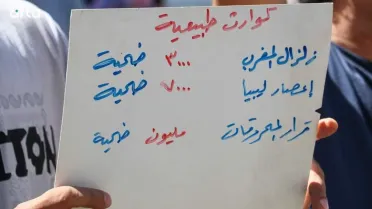 كوارث طبيعية
زلزال المغرب ٣٠٠٠ ضحية
إعصار ليبيا ٧٠٠٠ ضحية
قرار المحروقات مليون ضحية